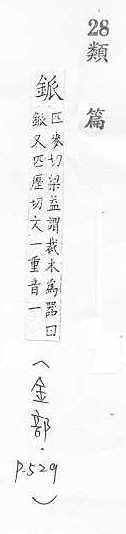 28
類篇
釽
匹麥切梁益謂裁木為器曰
釽又匹歷切文一重音一
(金部·
P.529)